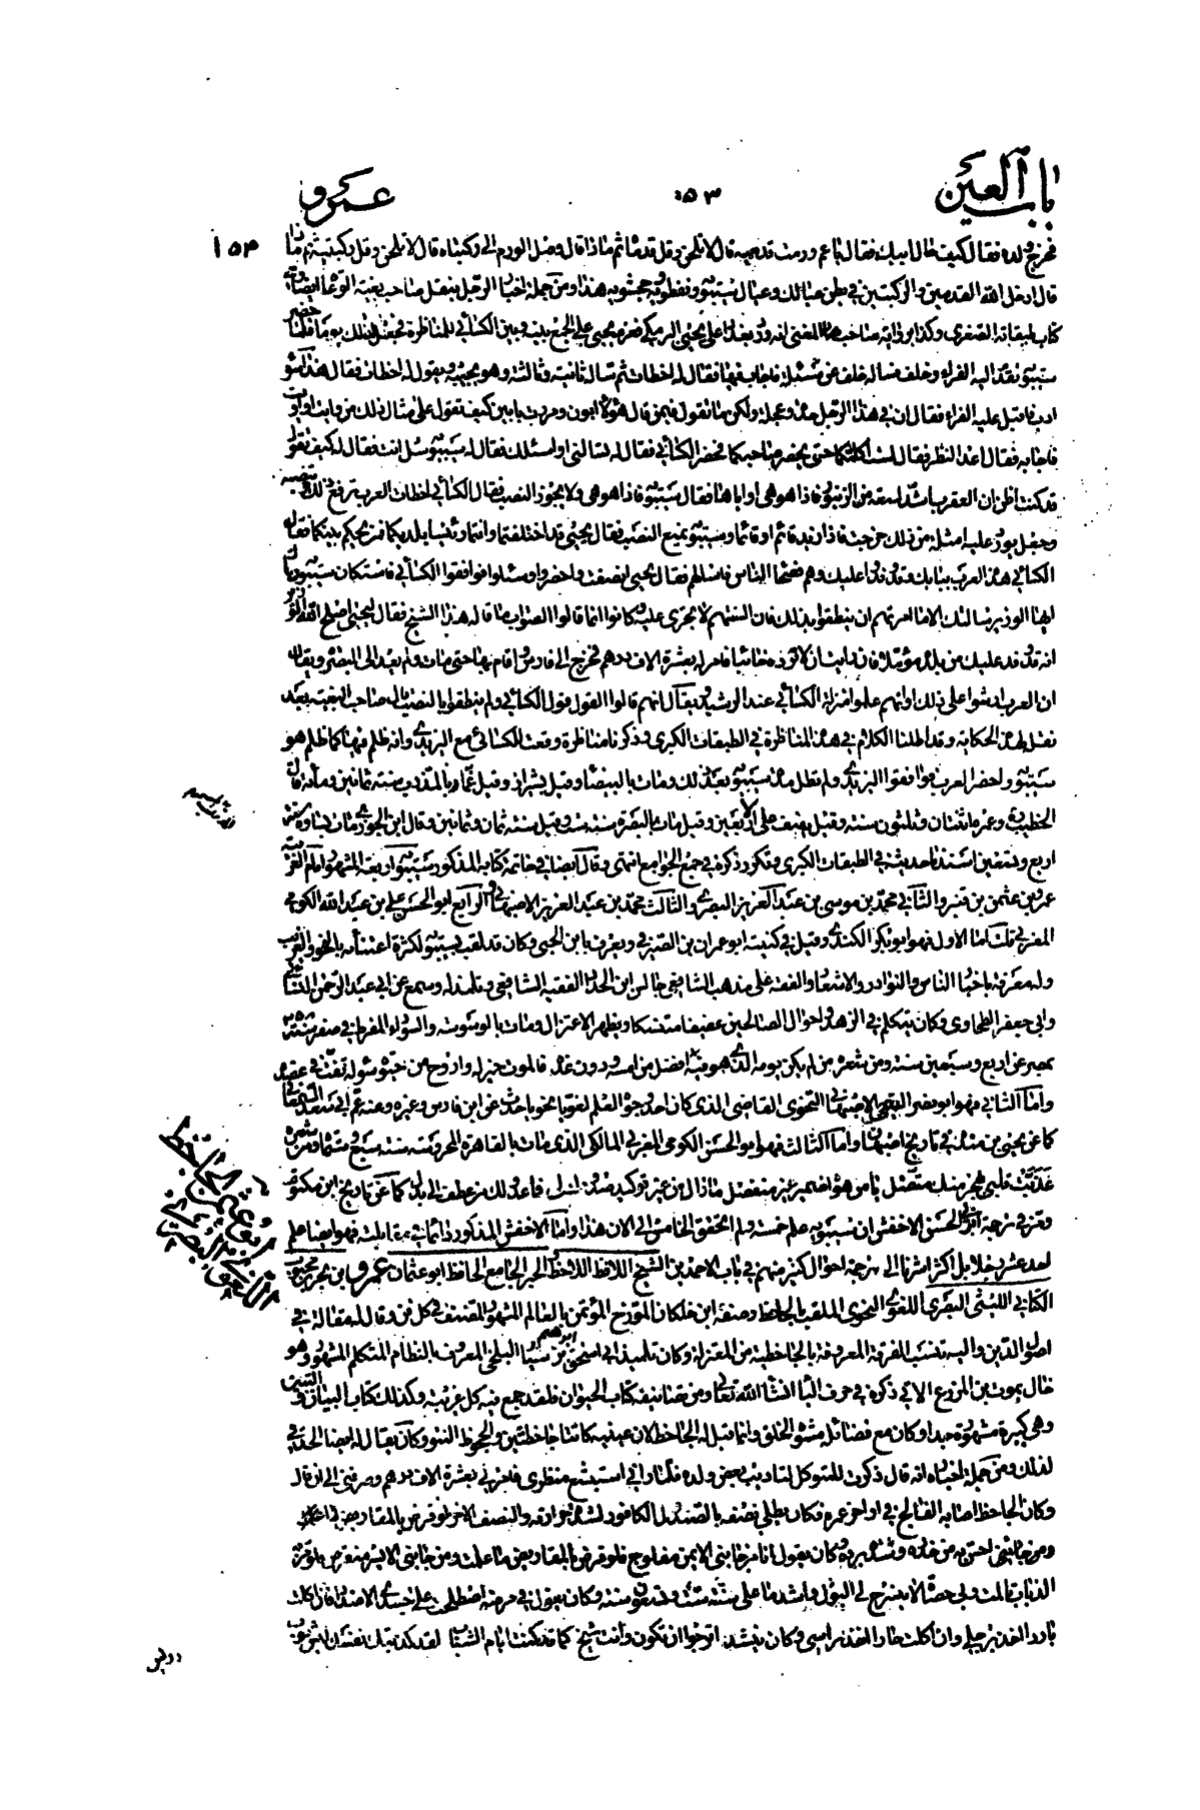 باب العين
٥٣
عمرو
١٥٣
فخرج ولده فقال كيف حال ابيك فقال يا عم ورمت قدميه قال لا تلحن وقل قدماه ثم ماذا قال وصل الورم الى ركبتاه قال لا تلحن وقل ركبتيه ثم ماذا
قال ادخل الله القدمين والركبتين في بطن عيالك وعيال سيبويه ونفطويه وجحشويه هذا ومن جملة اخبار الرجل بنقل صاحب بغية الوعاة ايضا في
كتاب طبقاته الصغرى وكذا برواية صاحب المغني انه ورد بغداد على يحيى البرمكي فعزم يحيى على الجمع بينه وبين الكسائي للمناظرة فجعل لذلك يوما فلما حضر
سيبويه تقدم اليه الفراء وخلف فساله خلف عن مسئلة فاجاب فيها فقال له اخطات ثم ساله ثانية وثالثة وهو يجيبه ويقول له اخطات فقال هذا سوء
ادب فاقبل عليه الفراء فقال ان في هذا الرجل حدة وعجلة ولكن ما تقول فيمن قال هؤلاء ابون ومررت بابين كيف تقول على مثال ذلك من وايت او اويت
فاجابه فقال اعد النظر فقال لست اكلمكما حتى يحضر صاحبكما فحضر الكسائي فقال له تسالني او اسئلك فقال له سيبويه سل انت فقال له كيف تقول
قد كنت اظن ان العقرب اشد لسعة من الزنبور فاذا هو هي او اياها فقال سيبويه فاذا هو هي ولا يجوز النصب فقال الكسائي اخطات العرب ترفع ذلك وتنصبه
وجعل يورد عليه امثلة من ذلك خرجت فاذا زيد قائم او قائما وسيبويه يمنع النصب فقال يحيى قد اختلفتما وانتما رئيسا بلديكما فمن يحكم بينكما فقال
الكسائي هذه العرب ببابك وقد وفدوا عليك وهم فصحاء الناس فاسئلهم فقال يحيى انصفت واحضروا وسئلوا فوافقوا الكسائي فاستكان سيبويه وقال
ايها الوزير سالتك الا ما امرتهم ان ينطقوا بذلك فان السنتهم لا تجري عليه وكانوا انما قالوا الصواب ما قاله هذا الشيخ فقال ليحيى اصلح الله الوزير
انه قد وفد عليك من بلده مؤملا فان رايت ان لا ترده خائبا فامر له بعشرة الاف درهم فخرج الى فارس واقام بها حتى مات ولم يعد الى البصرة ويقال
ان العرب ارشوا على ذلك او انهم علموا منزلة الكسائي عند الرشيد ويقال انهم قالوا القول قول الكسائي ولم ينطقوا بالنصب قال صاحب البغية بعد
نقل هذه الحكاية وقد اطلنا الكلام في هذه المناظرة في الطبقات الكبرى وذكرنا مناظرة وقعت للكسائي مع اليزيدي وانه ظلم فيها كما ظلم هو
سيبويه واحضر العرب فوافقوا اليزيدي ولم تطل مدة سيبويه بعد ذلك ومات بالبيضاء وقيل بشيراز وقيل سنة ثمانين ومائة قال
الخطيب وعمره اثنتان وثلثون سنة وقيل نيف على الاربعين وقيل مات بالبصرة سنة ست وقيل سنة ثمان وثمانين وقال ابن الجوزي مات بساوة سنة
اربع وتسعين اسندنا حديثه في الطبقات الكبرى وتكرر ذكره في جمع الجوامع انتهى وقال ايضا في خاتمة كتابه المذكور سيبويه اربعة المشهور امام العربية
عمرو بن عثمن بن قنبر والثاني محمد بن موسى بن عبد العزيز البصري والثالث محمد بن عبد العزيز الاصبهاني والرابع ابو الحسن علي بن عبد الله الكومي
المغربي قلت اما الاول فهو ابو بكر الكندي وقيل في كنيته ابو عمران بن الصيرفي ويعرف بابن الجبي وكان قد لقب بسيبويه لكثرة اعتنائه بالنحو والغريب
وله معرفة باخبار الناس والنوادر والاشعار والفقه على مذهب الشافعي جالس ابن الحداد الفقيه الشافعي وتلمذ له وسمع عن ابي عبد الرحمن النسائي
وابي جعفر الطحاوي وكان يتكلم في الزهد واحوال الصالحين عفيفا متنسكا ويظهر الاعتزال ومات بالوسوسة والسوداء المفرط في صفر سنة ٣٥٨
بمصر عن اربع وسبعين سنة ومن شعره من لم يكن يومه الذي هو فيه افضل من امسه ودون غده فالموت خير له واروح من حيوة سوء تفت في عضده
واما الثاني فهو ابو نصر التيمي الاصبهاني النحوي القاضي الذي كان احد وجوه القلم لغويا نحويا حدث عن ابن فارس وغيره وعنه عم ابي سعد السمعاني
كما عن يحيى بن منده في تاريخ اصبهان واما الثالث فهو ابو الحسن الكومي المغربي المالكي الذي مات بالقاهرة المحروسة سنة سبع وستمائة ومن شعره
عذبت قلبي بهجر منك متصل يا من هواه ضمير غير منفصل ما زال من غير توكيد صدودك لي فما عدولك من عطف الى بدل كما عن تاريخ ابن مكتوم
ومر في ترجمة ابي الحسن الاخفش ان سيبويه علم خمسة ولم اتحقق الخامس الى الان هذا واما الاخفش المذكور ذائما في مقابلته فهو ايضا علم
لعد عشر رجلا بل اكثر اشرنا الى ترجمة احوال كثير منهم في باب الاحمدين الشيخ اللافظ اللاحظ الحبر الجامع الحافظ ابو عثمان عمرو بن بحر بن محبوب
الكناني الليثي البصري اللغوي النحوي الملقب بالجاحظ وصفه ابن خلكان المورخ المؤتمن بالعالم المشهور المصنف في كل فن وقال له مقالة في
اصول الدين واليه تنسب الفرقة المعروفة بالجاحظية من المعتزلة وكان تلميذ ابي اسحق ابرهيم بن سيار البلخي المعروف بالنظام المتكلم المشهور وهو
خال يموت بن المزرع الاتي ذكره في حرف الياء انشاء الله تعالى ومن تصانيفه كتاب الحيوان فلقد جمع فيه كل غريبة وكذلك كتاب البيان والتبيين
وهي كبيرة مشهورة جدا وكان مع فضائله مشوه الخلق وانما قيل له الجاحظ لان عينيه كانتا جاحظتين والجحوظ النتوء وكان يقال له ايضا الحدقي
لذلك ومن جملة اخباره انه قال ذكرت للمتوكل لتاديب بعض ولده فلما راني استبشع منظري فامر لي بعشرة الاف درهم وصرفني الى ان قال
وكان الجاحظ اصابه الفالج في اواخر عمره فكان يطلي نصفه بالصندل والكافور لشدة حرارته والنصف الاخر لو قرض بالمقاريض لما احس
به من خدره وشدة برده وكان يقول انا من جانبي الايمن مفلوج فلو قرض بالمقاريض ما علمت ومن جانبي الايسر منقرس فلو مر به
الذباب لالمت وبي حصاة لا ينسرح لي البول واشد ما علي ست وتسعون سنة وكان يقول في مرضه اصطلحت على جسدي الاضداد ان اكلت
باردا اخذ برجلي وان اكلت حارا اخذ براسي وكان ينشد اترجو ان تكون وانت شيخ كما قد كنت ايام الشباب لقد كذبتك نفسك ليس ثوب
ابو عثمن الجاحظ
اللغوي البصري
دريس